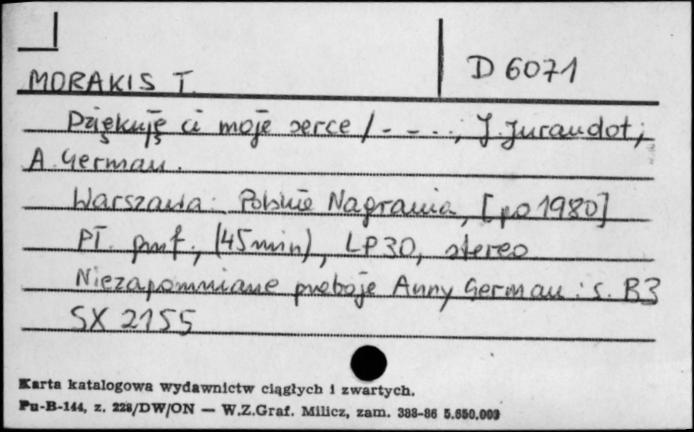 D 6071
MORAKIS T.
Dziękuję ci moje serce / - - - ., J. Jurandot;
A. German.
Warszawa: Polskie Nagrania, [po 1980]
Pł. gmf., (45 min), LP30, stereo
Niezapomniane przeboje Anny German: s. B3
SX 2155
Karta katalogowa wydawnictw ciągłych i zwartych.
Pu-B-144, z. 228/DW/ON — W.Z.Graf. Milicz, zam. 388-86 5.650.000